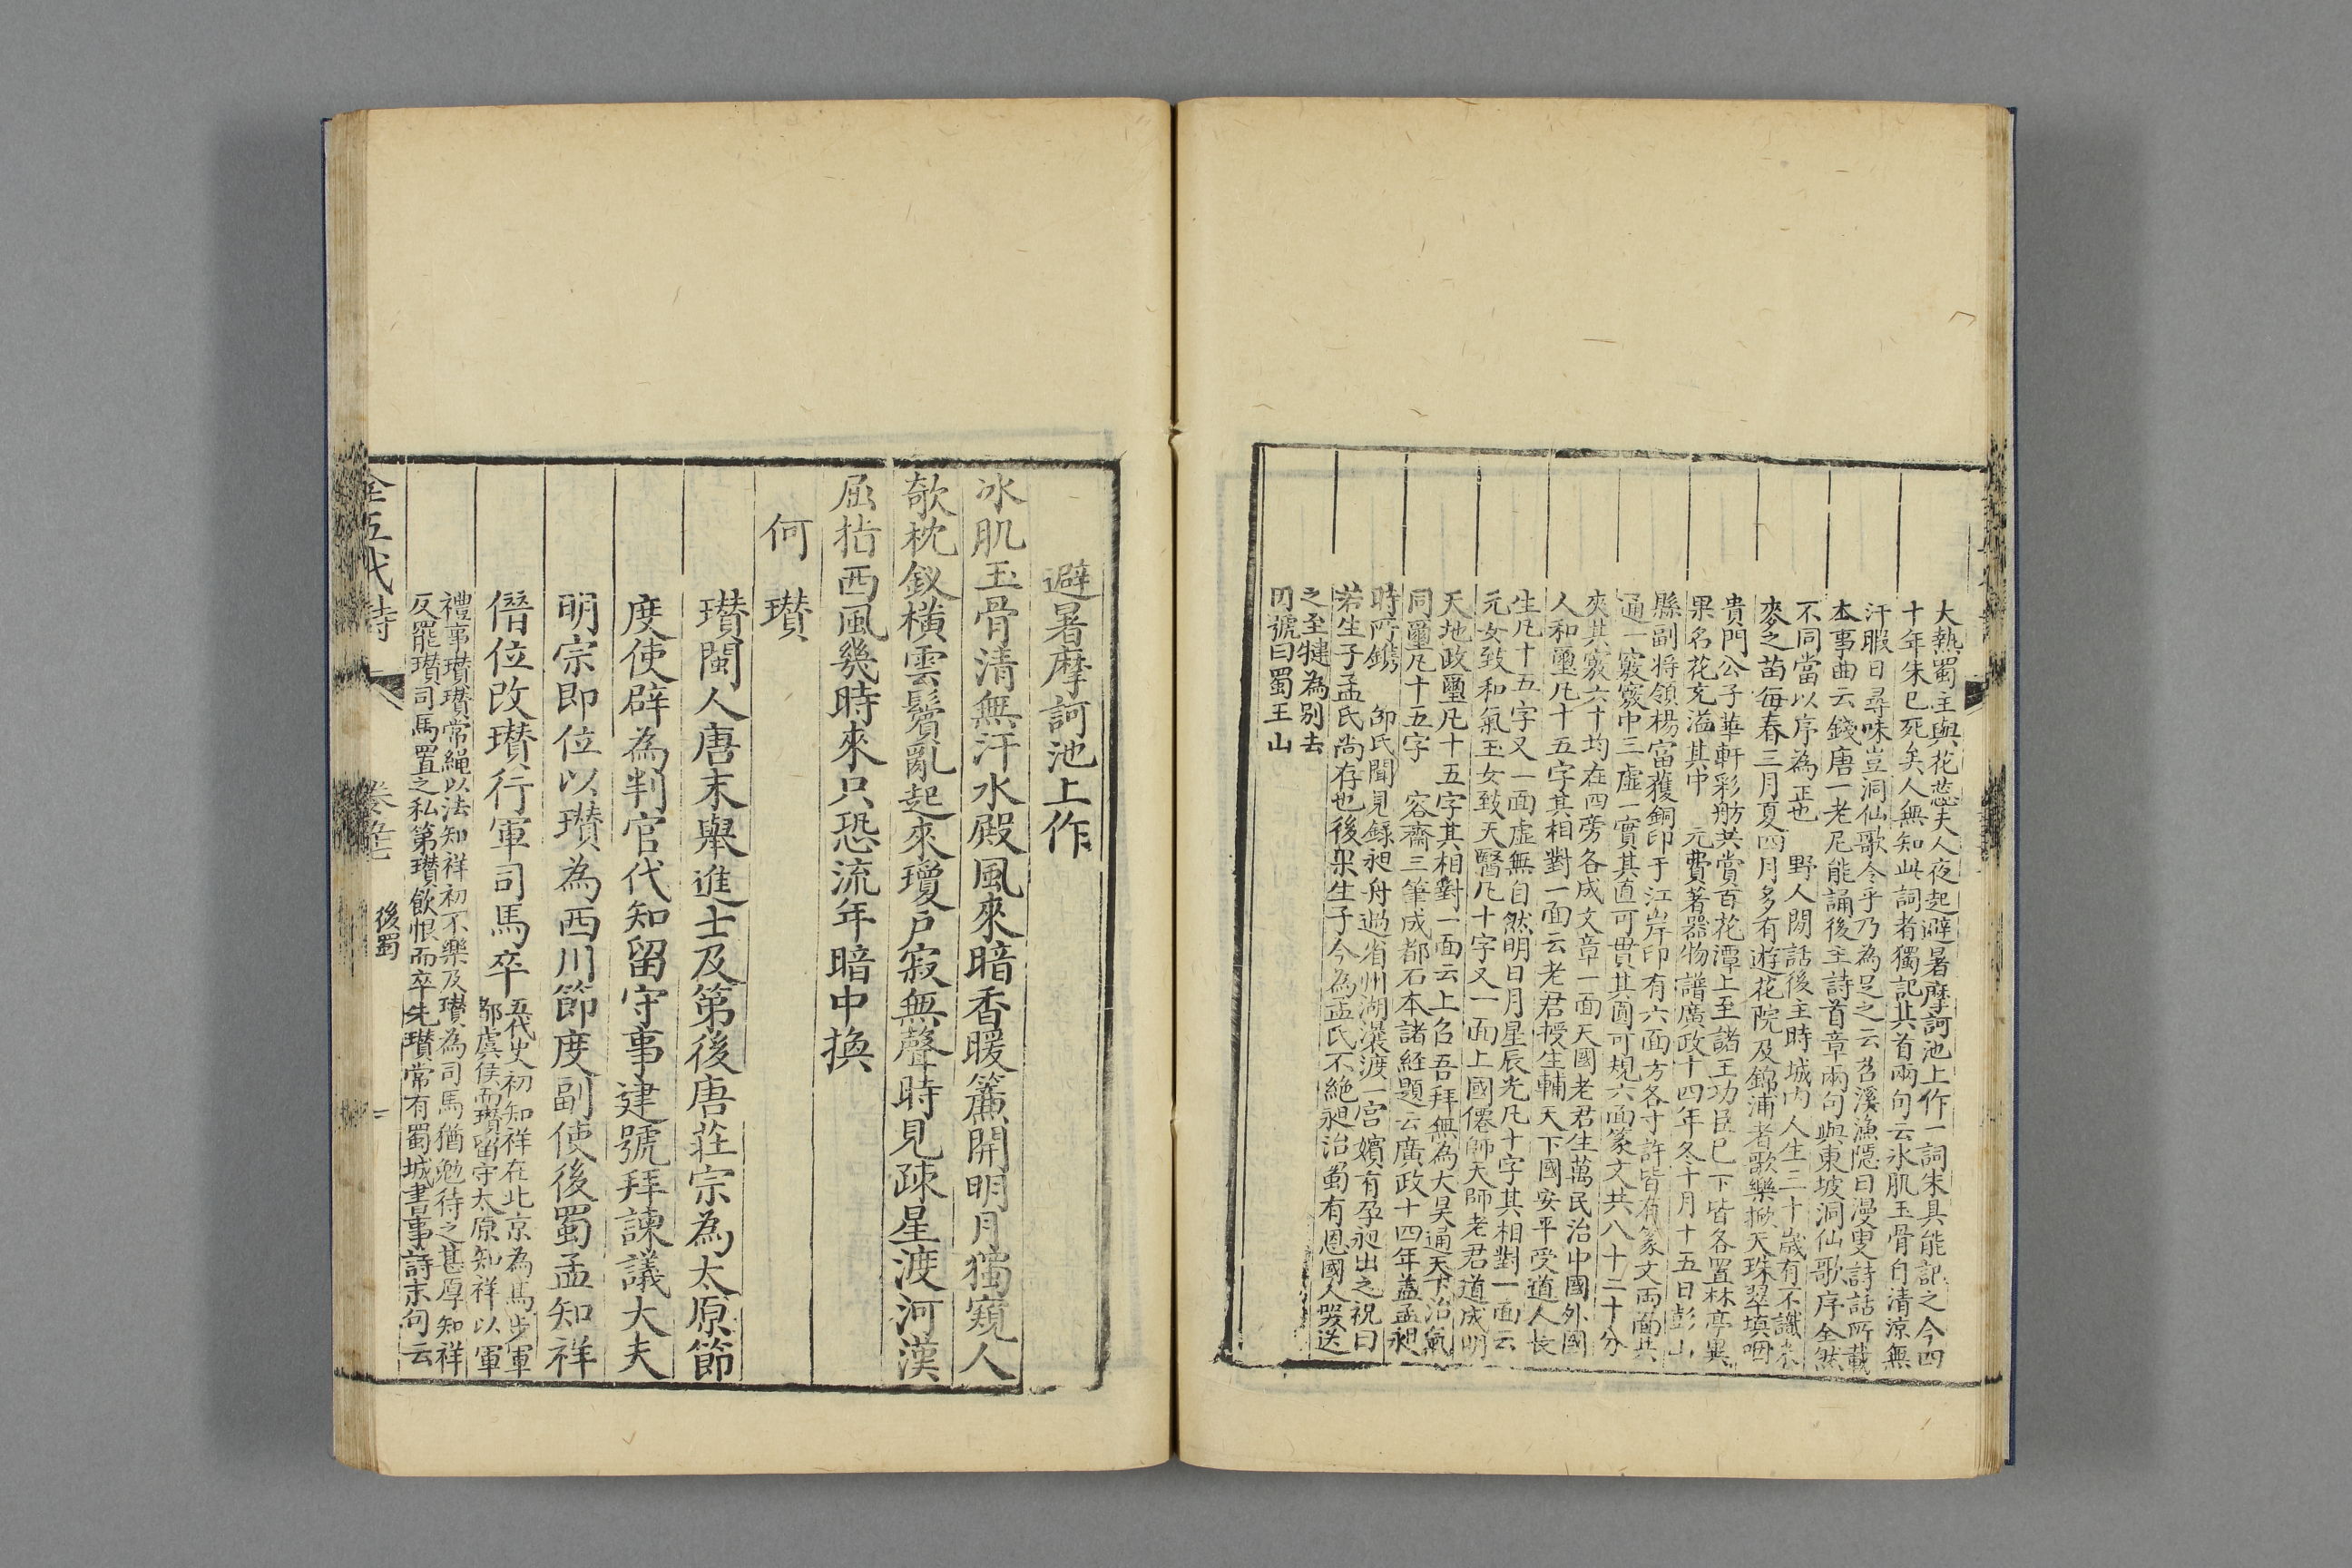 大熱蜀主與花蕊夫人夜起避暑摩訶池上作一詞朱具能記之今四
十年朱已死矣人無知此詞者獨記其首兩句云冰肌玉骨自清涼無
汗暇日尋味豈洞仙歌令乎乃為足之云苕溪漁隱曰漫叟詩話所載
本事曲云錢唐一老尼能誦後主詩首章兩句與東坡洞仙歌序全然
不同當以序為正也 野人閒話後主時城内人生三十歲有不識米
麥之苗每春三月夏四月多有遊花院及錦浦者歌樂掀天珠翠填咽
貴門公子華軒彩舫共賞百花潭上至諸王功臣已下皆各置林亭異
果名花充溢其中 元費著器物譜廣政十四年冬十月十五日彭山
縣副将領楊富獲銅印于江岸印有六面方各寸許皆有篆文两面共
通一竅竅中三虛一實其直可貫其圓可規六面篆文共八十二十分
夾其竅六十均在四旁各成文章一面天國老君生萬民治中國外國
人和璽凡十五字其相對一面云老君授生輔天下國安平受道人長
生凡十五字又一面虛無自然明日月星辰光凡十字其相對一面云
元女致和氣玉女致天醫凡十字又一面上國僊師天師老君道成明
天地政璽凡十五字其相對一面云上召吾拜無為大昊通天下治氣
同璽凡十五字 容齋三筆成都石本諸經題云廣政十四年蓋孟昶
時所鐫 邵氏聞見録昶舟過省州湖瀼渡一宮嬪有孕昶出之祝曰
若生子孟氏尚存也後果生子今為孟氏不絶昶治蜀有恩國人哭送
之至犍為别去
因號曰蜀王山
避暑摩訶池上作
冰肌玉骨清無汗水殿風來暗香暖簾開明月獨窺人
欹枕釵橫雲鬢亂起來瓊戶寂無聲時見疎星渡河漢
屈指西風幾時來只恐流年暗中換
何瓚
瓚閩人唐末舉進士及第後唐莊宗為太原節
度使辟為判官代知留守事建號拜諫議大夫
明宗即位以瓚為西川節度副使後蜀孟知祥
僭位改瓚行軍司馬卒
五代史初知祥在北京為馬步軍
都虞侯而瓚留守太原知祥以軍
禮事瓚瓚常繩以法知祥初不樂及瓚為司馬猶勉待之甚厚知祥
反罷瓚司馬置之私第瓚飲恨而卒先瓚常有蜀城書事詩末句云
全五代詩 卷 後蜀 二